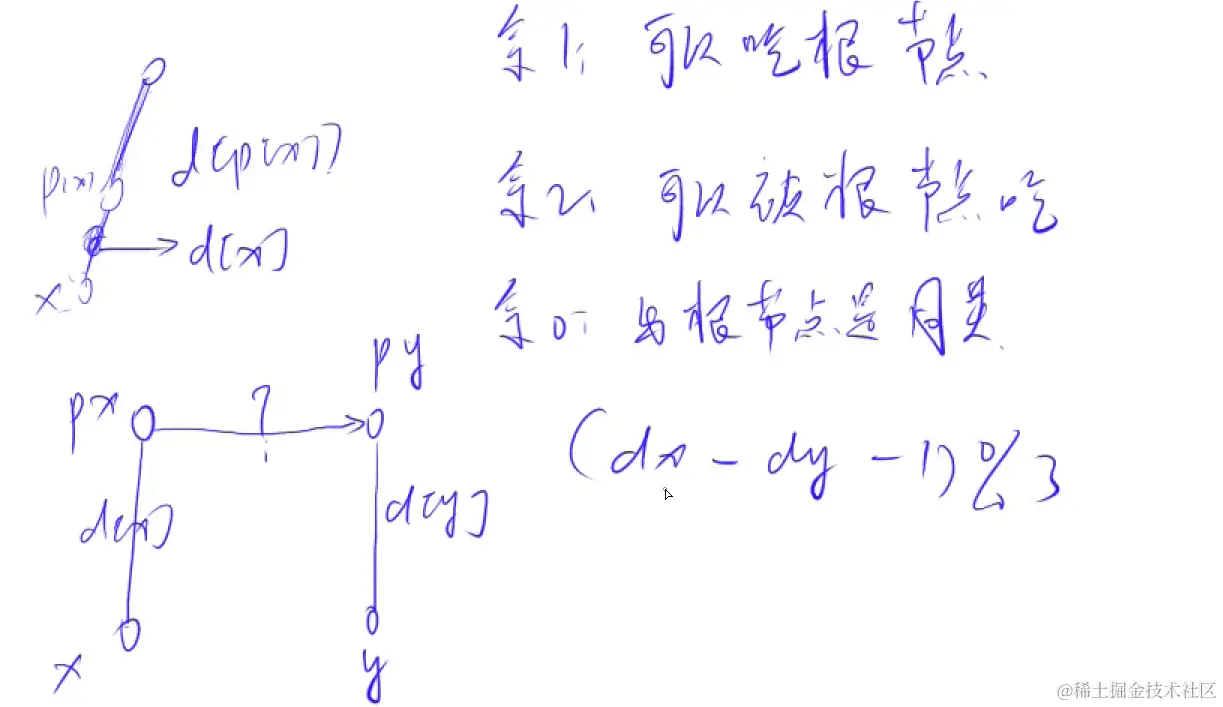 余1: 可以吃根节点
d[p[x]]
p[x]
余2: 可以被根节点吃
d[x]
x
余0: 与根节点是同类
px
?
py
(dx - dy - 1) % 3
d[x]
d[y]
x
y
@稀土掘金技术社区